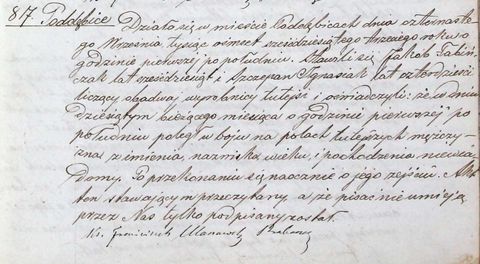 87. Poddębice Działo się w mieście Poddębicach dnia czternaste-
go Września tysiąc ośmset sześdziesiątego trzeciego roku o
godzinie pierwszej po południu. Stawili się Jakób
czak lat sześdziesiąt i Szczepan Ignasiak lat czterdzieści
liczący obadwaj wyrobnicy tutejsi i oświadczyli: że w dniu
dziesiątym bieżącego miesiąca o godzinie pierwszej po
południu poległ w boju na polach tutejszych mężczy-
zna z imienia, nazwiska, wieku, i pochodzenia niewia-
domy. Po przekonaniu się naocznie o jego zejściu. Akt
ten stawającym przeczytany a że pisać nie umieją
przez Nas tylko podpisany został.
Ks. Franciszek